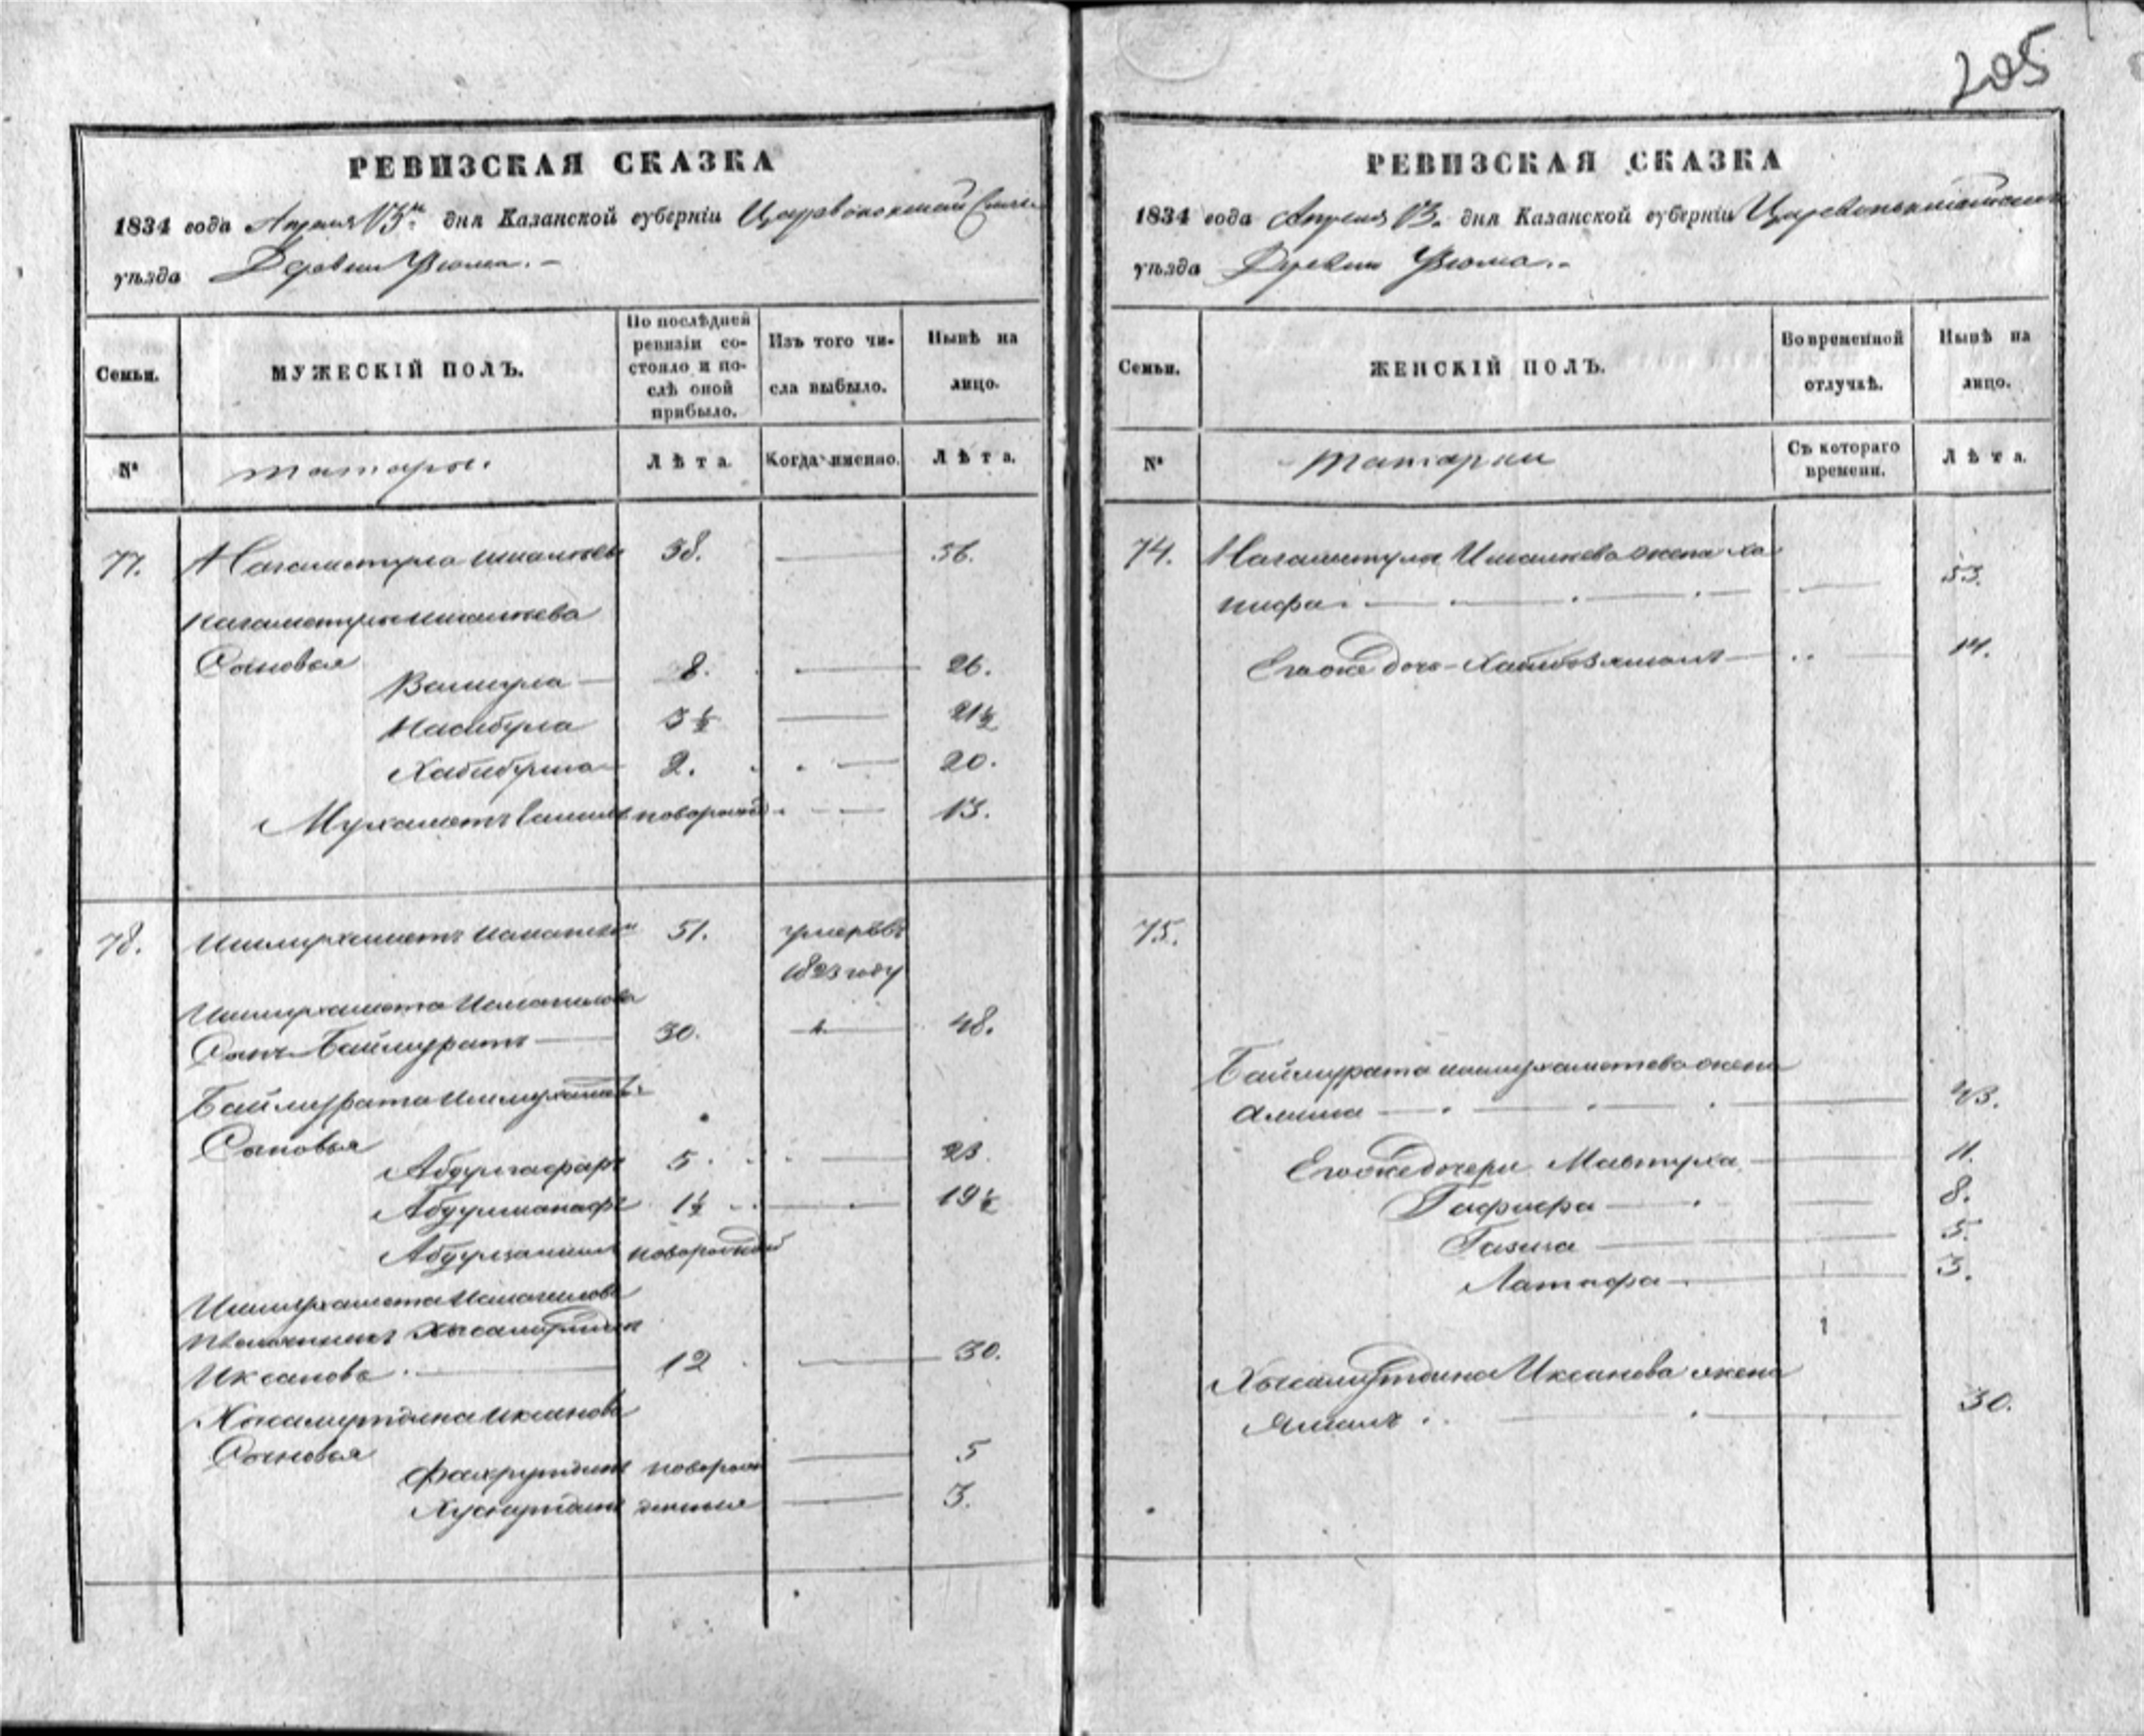 205
РЕВИЗСКАЯ СКАЗКА
1834 года Апреля 13го дня Казанской губерніи Царевококшайскаго
уѣзда Деревни Уюма.
Семьи.
МУЖЕСКІЙ ПОЛЪ.
По послѣдней ревизіи состояло и послѣ оной прибыло.
Изъ того числа выбыло.
Нынѣ на лицо.
№
татары.
Лѣта.
Когда именно.
Лѣта.
77. Нагаметула 38. 56.
Нагаметулы
Сыновья
Валиула 8. 26.
Насибула 3½ 21½
Хабибула 2. 20.
Мухаметъ новорожд 13.
78. Ишмухаметъ Исмагилов 51. умеръ въ
1823 году
Ишмухамета Исмагилова
Сынъ Баймуратъ 30. 48.
Баймурата Ишмухамет
Сыновья
Абдулгафаръ 5. 23.
Абдулманафъ 1½ 19½
новорожденный
Ишмухамета Исмагилова
племянникъ Хисамутдин
Иксановъ. 12 30.
Хисамутдина Иксанова
Сыновья
Фахрутдинъ новорож 5
Хуснутдинъ денныя 3.
РЕВИЗСКАЯ СКАЗКА
1834 года Апреля 13. дня Казанской губерніи Царевококшайскаго
уѣзда Деревни Уюма.
Семьи.
ЖЕНСКІЙ ПОЛЪ.
Во временной отлучкѣ.
Нынѣ на лицо.
№
татарки
Съ котораго времени.
Лѣта.
74. Нагаметулы жена Ха
нифа. 53.
Его же дочь 14.
75.
Баймурата Ишмухаметева жена
Алима 43.
Его же дочери Мавтуха 11.
Гафифа 8.
Газиза 5.
Латифа 3.
Хисамутдина Иксанова жена
30.